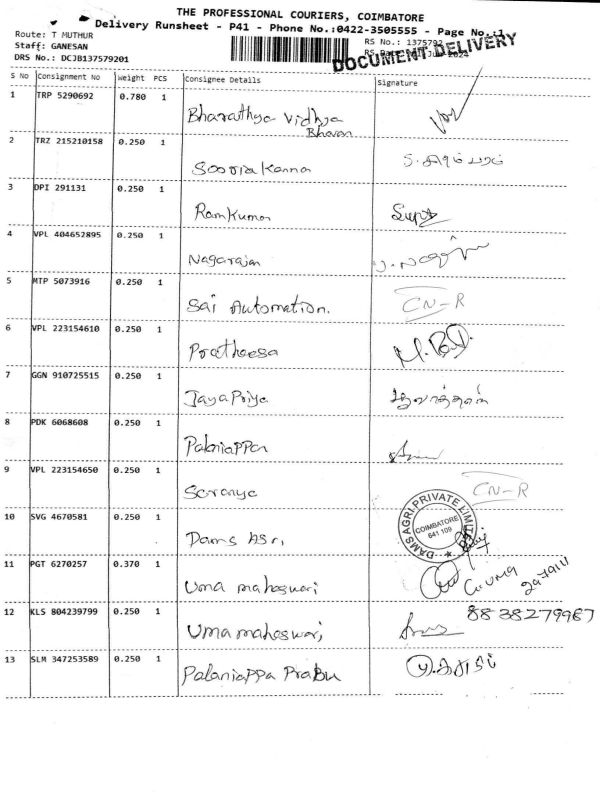 THE PROFESSIONAL COURIERS, COIMBATORE
Delivery Runsheet - P41 - Phone No.:0422-3505555 - Page No.:1
Route: T MUTHUR
Staff: GANESAN
DRS No.: DCJB137579201
RS No.: 1375792
DOCUMENT DELIVERY
S No Consignment No Weight PCS Consignee Details Signature
1 TRP 5290692 0.780 1
Bharathya Vidhya
Bhavan
2 TRZ 215210158 0.250 1
Sooriakanna
3 DPI 291131 0.250 1
Ramkumar
4 VPL 404652895 0.250 1
Nagarajan
5 MTP 5073916 0.250 1
Sai Automation. CN-R
6 VPL 223154610 0.250 1
Pratheesa
7 GGN 910725515 0.250 1
JayaPriya
8 PDK 6068608 0.250 1
Palaniappan
9 VPL 223154650 0.250 1
Saranya CN-R
DAMS AGRI PRIVATE LIMITED
COIMBATORE
641 109
10 SVG 4670581 0.250 1
Dams
11 PGT 6270257 0.370 1
Uma maheswari
12 KLS 804239799 0.250 1 8838279987
Uma maheswari
13 SLM 347253589 0.250 1
Palaniappa Prabu